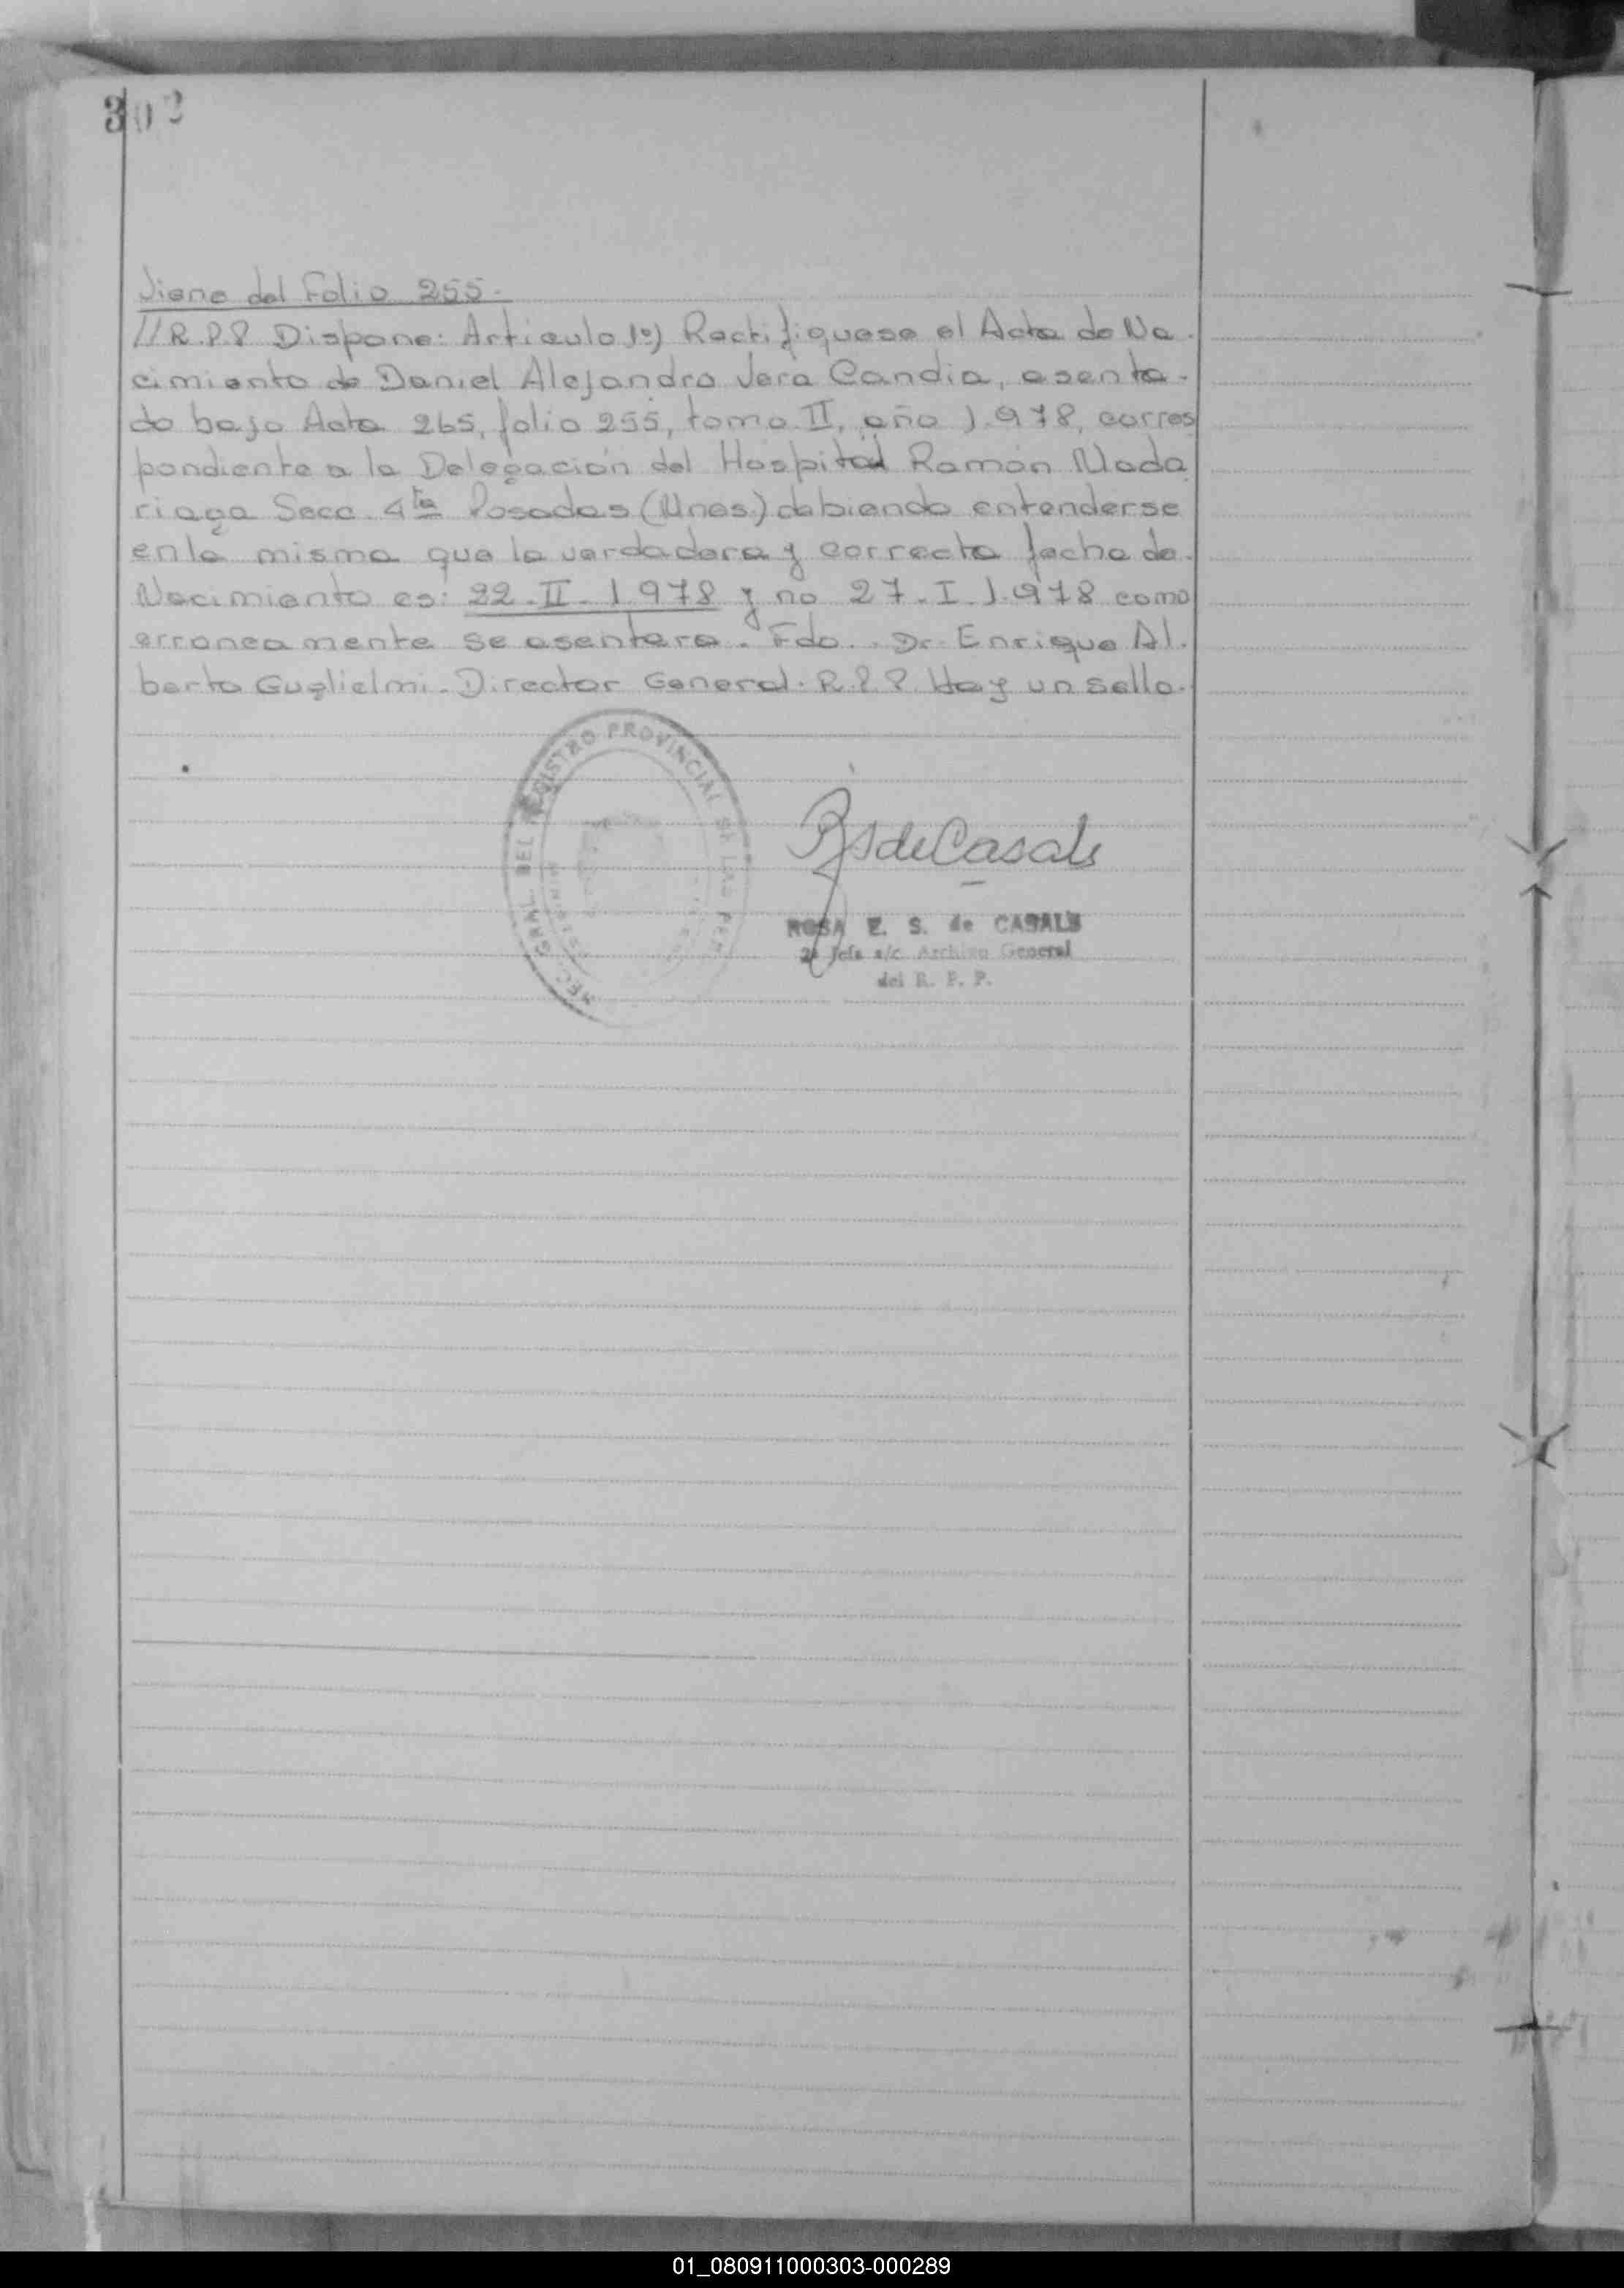 302
Viene del Folio 255.
//R.P.P Dispone: Articulo 1º) Rectifiquese el Acta de Na.
cimiento de Daniel Alejandro Vera Candia, asenta.
do bajo Acta 265, folio 255, tomo II, año 1.978, corres
pondiente a la Delegación del Hospital Ramón Mada
riaga Secc. 4ta Posadas (Mnes.) debiendo entenderse
en la misma que la verdadera y correcta fecha de.
Nacimiento es: 22.II.1.978 y no 27.I.1.978 como
erroneamente se asentara. Fdo.. Dr. Enrique Al.
berto Guglielmi. Director General. R.P.P. Hay un sello.
GRAL. DEL REGISTRO PROVINCIAL DE LAS PER
RS de Casals
ROSA E. S. de CASALS
2ª Jefa a/c Archivo General
del R. P. P.
01_080911000303-000289